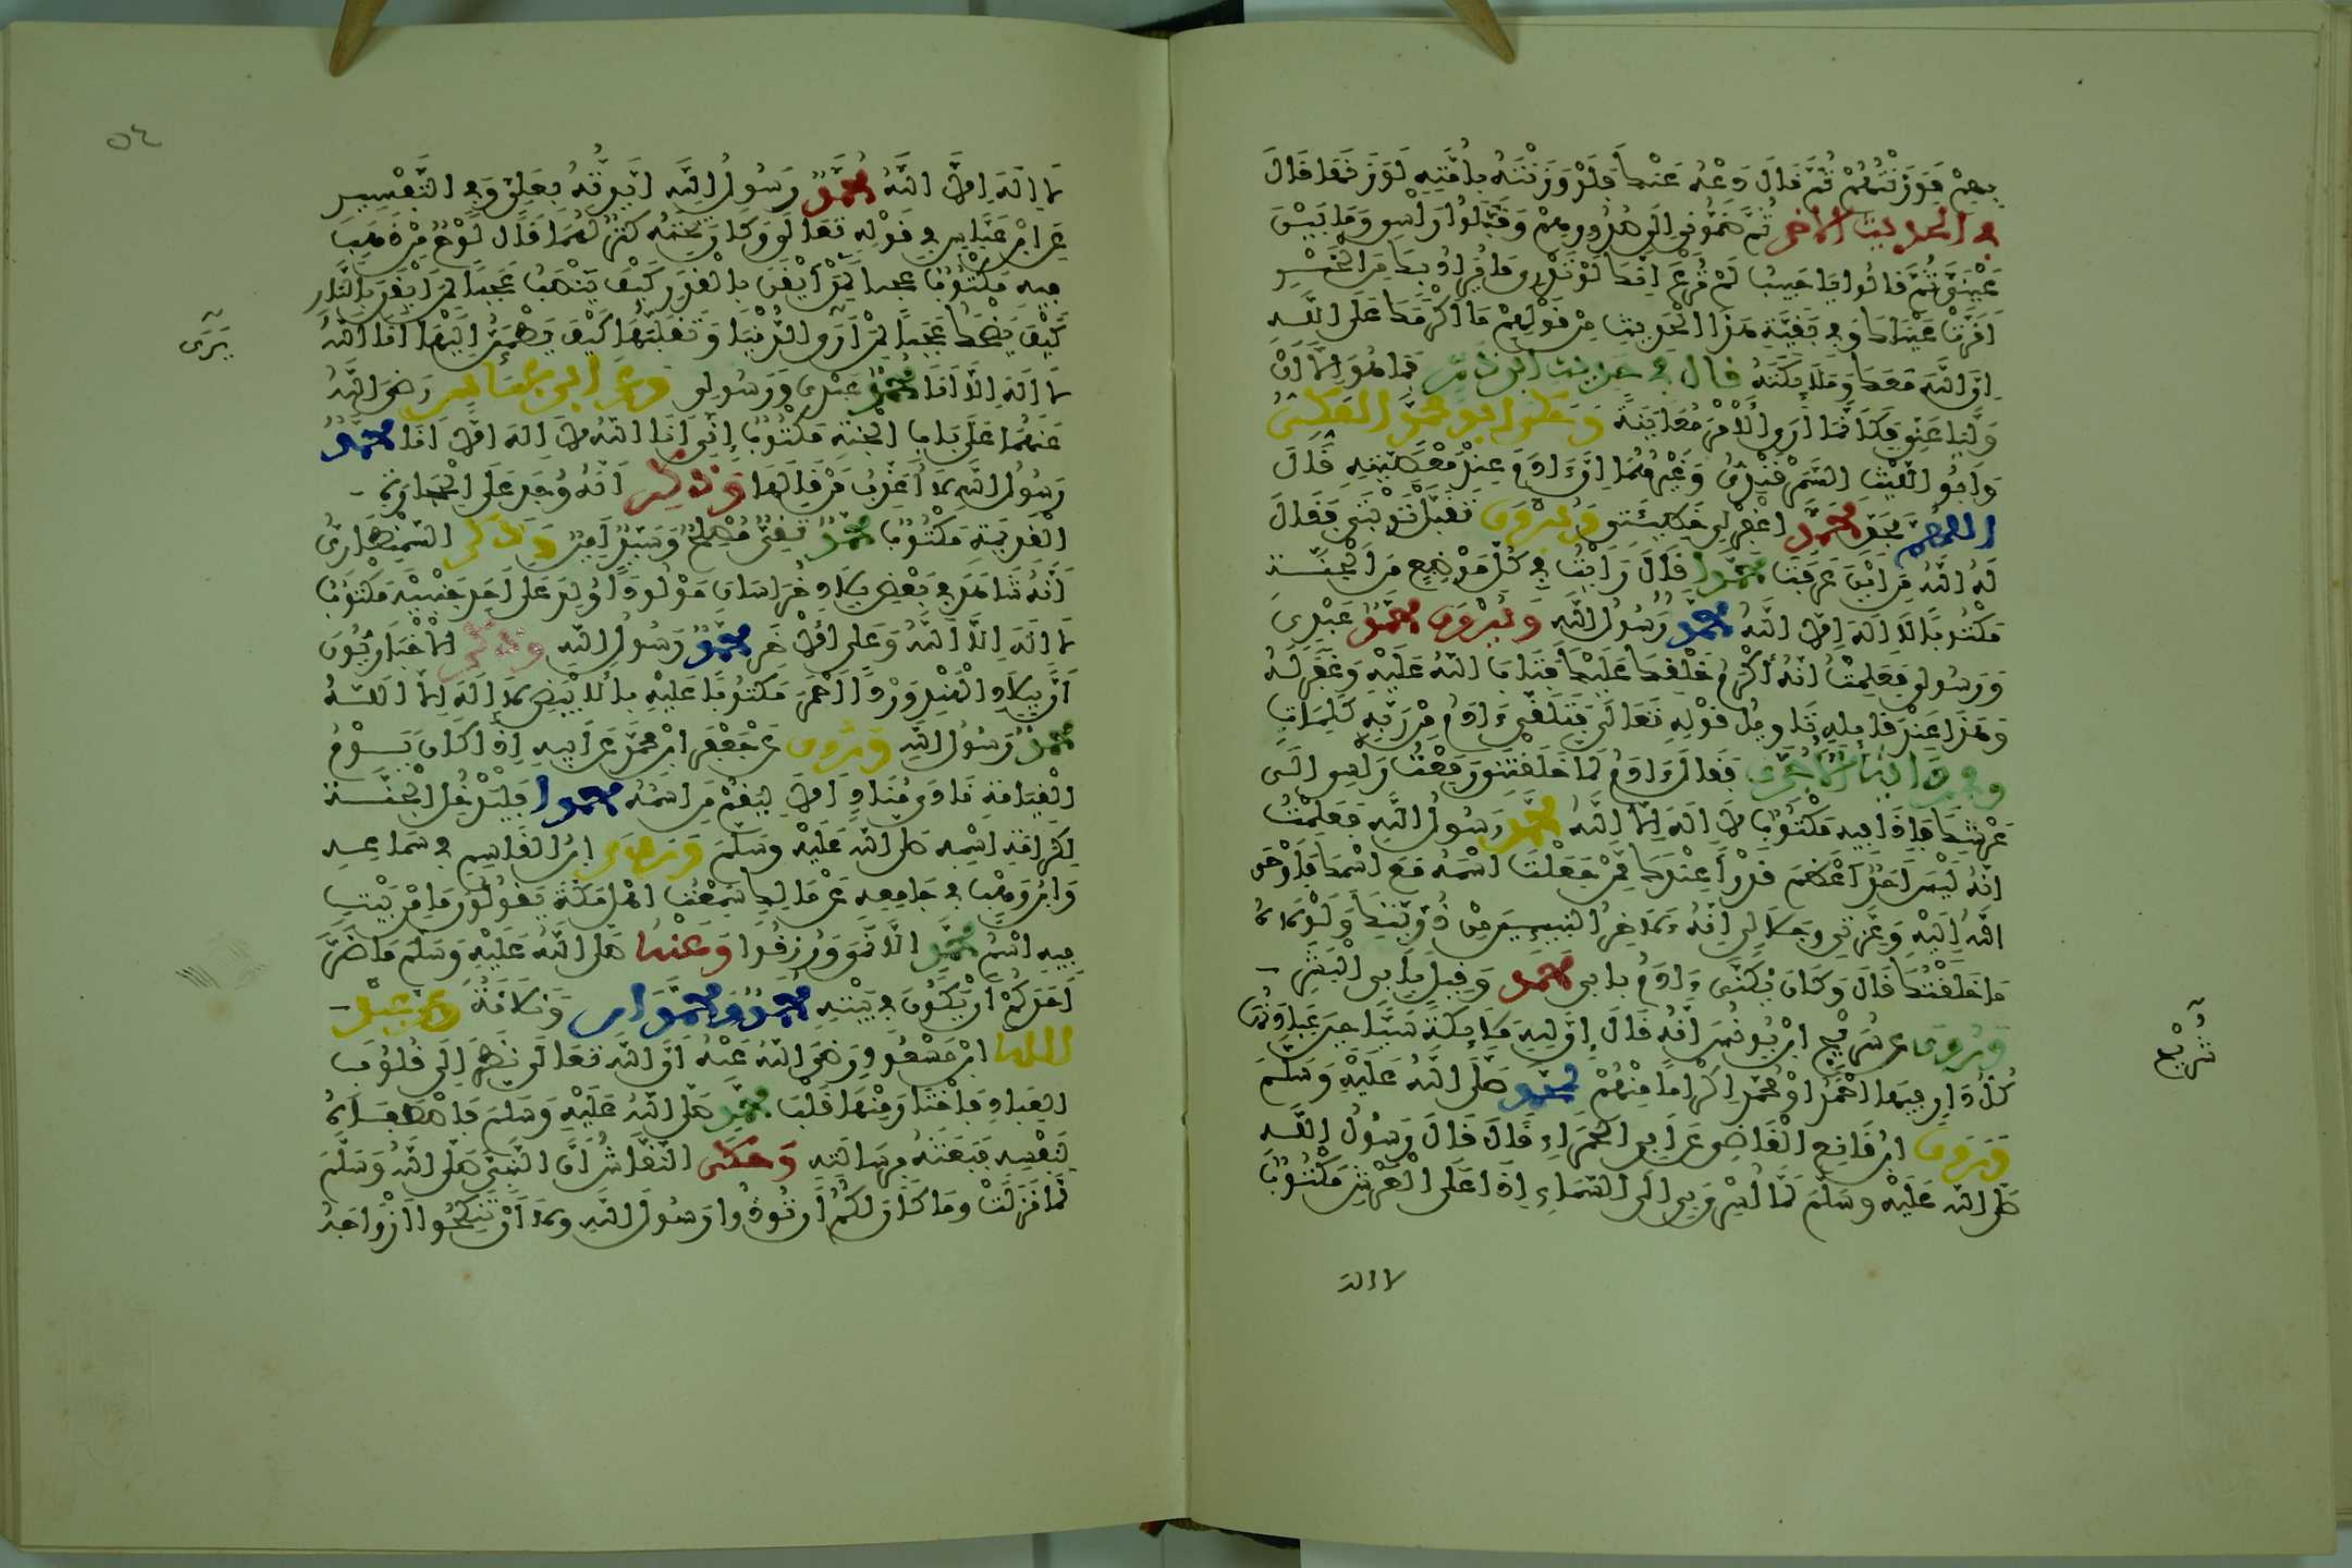 بِهِمْ فَوَزَنْتُهُمْ ثُمَّ قَالَ دَعْهُ عَنْكَ فَلَوْ وَزَنْتَهُ بِأُمَّتِهِ لَوَزَنَهَا قَالَ
في الحديث الآخر ثُمَّ ضَمُّونِي إلى صُدُورِهِمْ وَقَبَّلُوا رَأْسِي وَمَا بَيْنَ
عَيْنَيَّ ثُمَّ قَالُوا يَا حَبِيبُ لَمْ تُرَعْ إِنَّكَ لَوْ تَدْرِي مَا يُرَادُ بِكَ مِنَ الخَيْرِ
لَقَرَّتْ عَيْنَاكَ وَفِي بَقِيَّةِ هَذَا الْحَدِيثِ مِنْ قَوْلِهِمْ مَا أَكْرَمَكَ عَلَى اللَّهِ
إِنَّ اللَّهَ مَعَكَ وَمَلَائِكَتَهُ قال في حديث أبي ذر فَمَا هُوَ إِلَّا أَنْ
وَلَّيَا عَنِّي فَكَأَنَّمَا أَرَى الْأَمْرَ مُعَايَنَةً وحكى أبو محمد المكي
وَأَبُو اللَّيْثِ السَّمَرْقَنْدِيُّ وَغَيْرُهُمَا إِنَّ ءَادَمَ عِنْدَ مَعْصِيَتِهِ قَالَ
اللهم بِحَقِّ محمد اغْفِرْ لِي خَطِيئَتِي ويروى تَقَبَّلْ تَوْبَتِي فَقَالَ
لَهُ اللَّهُ مِنْ أَيْنَ عَرَفْتَ محمدا قَالَ رَأَيْتُ فِي كُلِّ مَوْضِعٍ مِنَ الْجَنَّةِ
مَكْتُوبًا لَا إِلَهَ إِلَّا اللَّهُ محمد رَسُولُ اللَّهِ ويروى محمد عَبْدِي
وَرَسُولِي فَعَلِمْتُ أَنَّهُ أَكْرَمُ خَلْقِكَ عَلَيْكَ فَتَابَ اللَّهُ عَلَيْهِ وَغَفَرَ لَهُ
وَهَذَا عِنْدَ قَائِلِهِ تَأْوِيلُ قَوْلِهِ تَعَالَى فَتَلَقَّى ءَادَمُ مِنْ رَبِّهِ كَلِمَاتٍ
وفي رواية الآجري فَقَالَ ءَادَمُ لَمَّا خَلَقْتَنِي رَفَعْتُ رَأْسِي إِلَى
عَرْشِكَ فَإِذَا فِيهِ مَكْتُوبٌ لَا إِلَهَ إِلَّا اللَّهُ محمد رَسُولُ اللَّهِ فَعَلِمْتُ
أَنَّهُ لَيْسَ أَحَدٌ أَعْظَمَ قَدْرًا عِنْدَكَ مِمَّنْ جَعَلْتَ اسْمَهُ مَعَ اسْمِكَ فَأَوْحَى
اللَّهُ إِلَيْهِ وَعِزَّتِي وَجَلَالِي إِنَّهُ ءَلَاخِرُ النَّبِيئِينَ مِنْ ذُرِّيَّتِكَ وَلَوْلَاهُ
مَا خَلَقْتُكَ قَالَ وَكَانَ يُكَنَّى ءَادَمُ بِأَبِي محمد وَقِيلَ بِأَبِي الْبَشَرِ
ويروى عن سُرَيْجِ ابْنِ يُونُسَ أَنَّهُ قَالَ إِنَّ لِلَّهِ مَلَائِكَةً سَيَّاحِينَ عِبَادَتُهَا
كُلُّ دَارٍ فِيهَا أَحْمَدُ أَوْ مُحَمَّدٌ إِكْرَامًا مِنْهُمْ لمحمد صَلَّى اللَّهُ عَلَيْهِ وَسَلَّمَ
وروى ابْنُ قَانِعٍ الْقَاضِي عَنْ أَبِي الْحَمْرَاءِ قَالَ قَالَ رَسُولُ اللَّهِ
صَلَّى اللَّهُ عَلَيْهِ وَسَلَّمَ لَمَّا أُسْرِيَ بِي إِلَى السَّمَاءِ إِذَا عَلَى الْعَرْشِ مَكْتُوبٌ
لا اله
سُرَيْج
٥٤
لَا إِلَهَ إِلَّا اللَّهُ مُحَمَّدٌ رَسُولُ اللَّهِ أَيَّدْتُهُ بِعَلِيٍّ وَفِي التَّفْسِيرِ
عَنِ ابْنِ عَبَّاسٍ فِي قَوْلِهِ تَعَالَى وَكَانَ تَحْتَهُ كَنْزٌ لَهُمَا قَالَ لَوْحٌ مِنْ ذَهَبٍ
فِيهِ مَكْتُوبٌ عَجَبًا لِمَنْ أَيْقَنَ بِالْقَدَرِ كَيْفَ يَنْصَبُ عَجَبًا لِمَنْ أَيْقَنَ بِالنَّارِ
كَيْفَ يَضْحَكُ عَجَبًا لِمَنْ رَأَى الدُّنْيَا وَتَقَلُّبَهَا كَيْفَ يَطْمَئِنُّ إِلَيْهَا أَنَا اللَّهُ
لَا إِلَهَ إِلَّا أَنَا مُحَمَّدٌ عَبْدِي وَرَسُولِي وعن ابن عباس رَضِيَ اللَّهُ
عَنْهُمَا عَلَى بَابِ الْجَنَّةِ مَكْتُوبٌ إِنِّي أَنَا اللَّهُ لَا إِلَهَ إِلَّا أَنَا محمد
رَسُولُ اللَّهِ لَا أُعَذِّبُ مَنْ قَالَهَا وذكر أَنَّهُ وُجِدَ عَلَى الْحِجَارَةِ
الْقَدِيمَةِ مَكْتُوبٌ محمد تَقِيٌّ مُصْلِحٌ وَسَيِّدٌ أَمِينٌ وذكر السَّمِنْطَارِيُّ
أَنَّهُ شَاهَدَ فِي بَعْضِ بِلَادِ خُرَاسَانَ مَوْلُودًا وُلِدَ عَلَى أَحَدِ جَنْبَيْهِ مَكْتُوبٌ
لَا إِلَهَ إِلَّا اللَّهُ وَعَلَى الْأُخْرَى محمد رَسُولُ اللَّهِ وذكر الْأَخْبَارِيُّونَ
أَنَّ بِبِلَادِ الْهِنْدِ وَرْدًا أَحْمَرَ مَكْتُوبًا عَلَيْهِ بِالْأَبْيَضِ لَا إِلَهَ إِلَّا اللَّهُ
محمد رَسُولُ اللَّهِ وروى عَنْ جَعْفَرِ ابْنِ مُحَمَّدٍ عَنْ أَبِيهِ إِذَا كَانَ يَوْمُ
الْقِيَامَةِ نَادَى مُنَادٍ أَلَا لِيَقُمْ مَنِ اسْمُهُ محمدا فَلْيَدْخُلِ الْجَنَّةَ
لِكَرَامَةِ اسْمِهِ صَلَّى اللَّهُ عَلَيْهِ وَسَلَّمَ وروى ابْنُ الْقَاسِمِ فِي سَمَاعِهِ
وَابْنُ وَهْبٍ فِي جَامِعِهِ عَنْ مَالِكٍ سَمِعْتُ أَهْلَ مَكَّةَ يَقُولُونَ مَا مِنْ بَيْتٍ
فِيهِ اسْمُ محمد إِلَّا نَمَى وَرُزِقُوا وعنه صَلَّى اللَّهُ عَلَيْهِ وَسَلَّمَ مَا ضَرَّ
أَحَدَكُمْ أَنْ يَكُونَ فِي بَيْتِهِ محمد ومحمدان وَثَلَاثَةٌ وعن عبد
الله ابْنِ مَسْعُودٍ رَضِيَ اللَّهُ عَنْهُ أَنَّ اللَّهَ تَعَالَى نَظَرَ إِلَى قُلُوبِ
الْعِبَادِ فَاخْتَارَ مِنْهَا قَلْبَ محمد صَلَّى اللَّهُ عَلَيْهِ وَسَلَّمَ فَاصْطَفَاهُ
لِنَفْسِهِ فَبَعَثَهُ بِرِسَالَتِهِ وحكى النَّقَّاشُ أَنَّ النَّبِيَّ صَلَّى اللَّهُ وَسَلَّمَ
لَمَّا نَزَلَتْ وَمَا كَانَ لَكُمْ أَنْ تُؤْذُوا رَسُولَ اللَّهِ وَلَا أَنْ تَنْكِحُوا أَزْوَاجَهُ
يَرَى